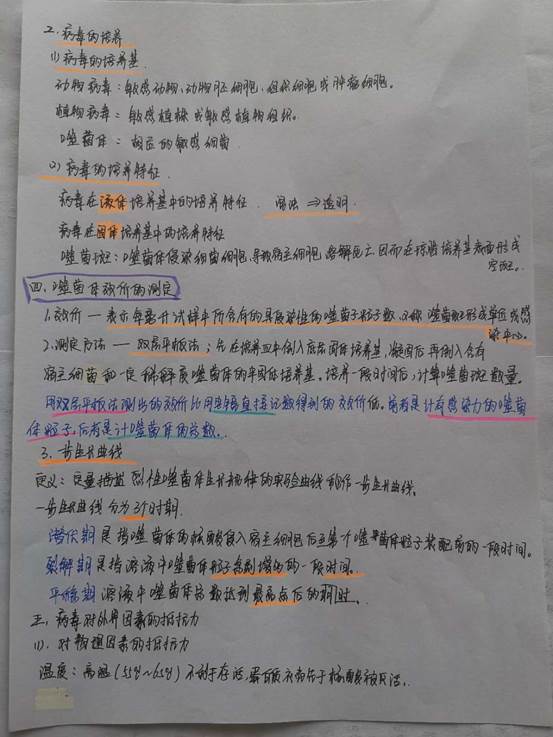 二. 病毒的培养
(1) 病毒的培养基
动物病毒：敏感动物、动物胚细胞、组织细胞或肿瘤细胞。
植物病毒：敏感植株或敏感植物组织。
噬菌体：相应的敏感细菌
(2) 病毒的培养特征
病毒在液体培养基中的培养特征 溶法 ⇒ 透明
病毒在固体培养基中的培养特征
噬菌斑：噬菌体侵染细菌细胞，导致宿主细胞溶解死亡，因而在琼脂培养基表面形成
空斑。
四、噬菌体效价的测定
1.效价 — 表示每毫升试样中所含有的具侵染性的噬菌体粒子数，又称噬菌斑形成单位或感
染中心。
2.测定方法 — 双层平板法：先在培养皿中倒入底层固体培养基，凝固后再倒入含有
宿主细菌和一定稀释度噬菌体的半固体培养基。培养一段时间后，计算噬菌斑数量。
用双层平板法测出的效价比用电镜直接计数得到的效价低。前者是计有感染力的噬菌
体粒子，后者是计噬菌体的总数。
3. 一步生长曲线
定义：定量描述烈性噬菌体生长规律的实验曲线称作一步生长曲线。
一步生长曲线分为3个时期
潜伏期是指噬菌体的核酸侵入宿主细胞后至第一个噬菌体粒子装配前的一段时间。
裂解期是指溶液中噬菌体粒子急剧增加的一段时间。
平稳期 溶液中噬菌体总数达到最高点后的时期。
五. 病毒对外界因素的抵抗力
(1). 对物理因素的抵抗力
温度：高温(55℃~65℃)不利于存活，蛋白质